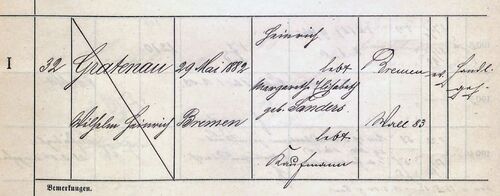 I
32
Gratenau
Wilhelm Heinrich
29 Mai 1882
Bremen
Heinrich
lebt
Margarethe Elisabeth
geb. Sanders
lebt
Kaufmann
Bremen
Wall 83
ev.
Handl-
geh.
Bemerkungen.